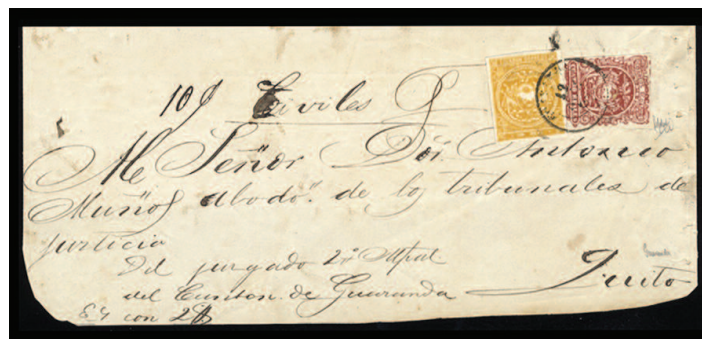 10 J Civiles P
Al Señor Dor Antonio
Muños abodo.n de los tribunales de
justicia
Del jusgado 2º Mpal
del Canton de Guaranda
Quito
84 con 28